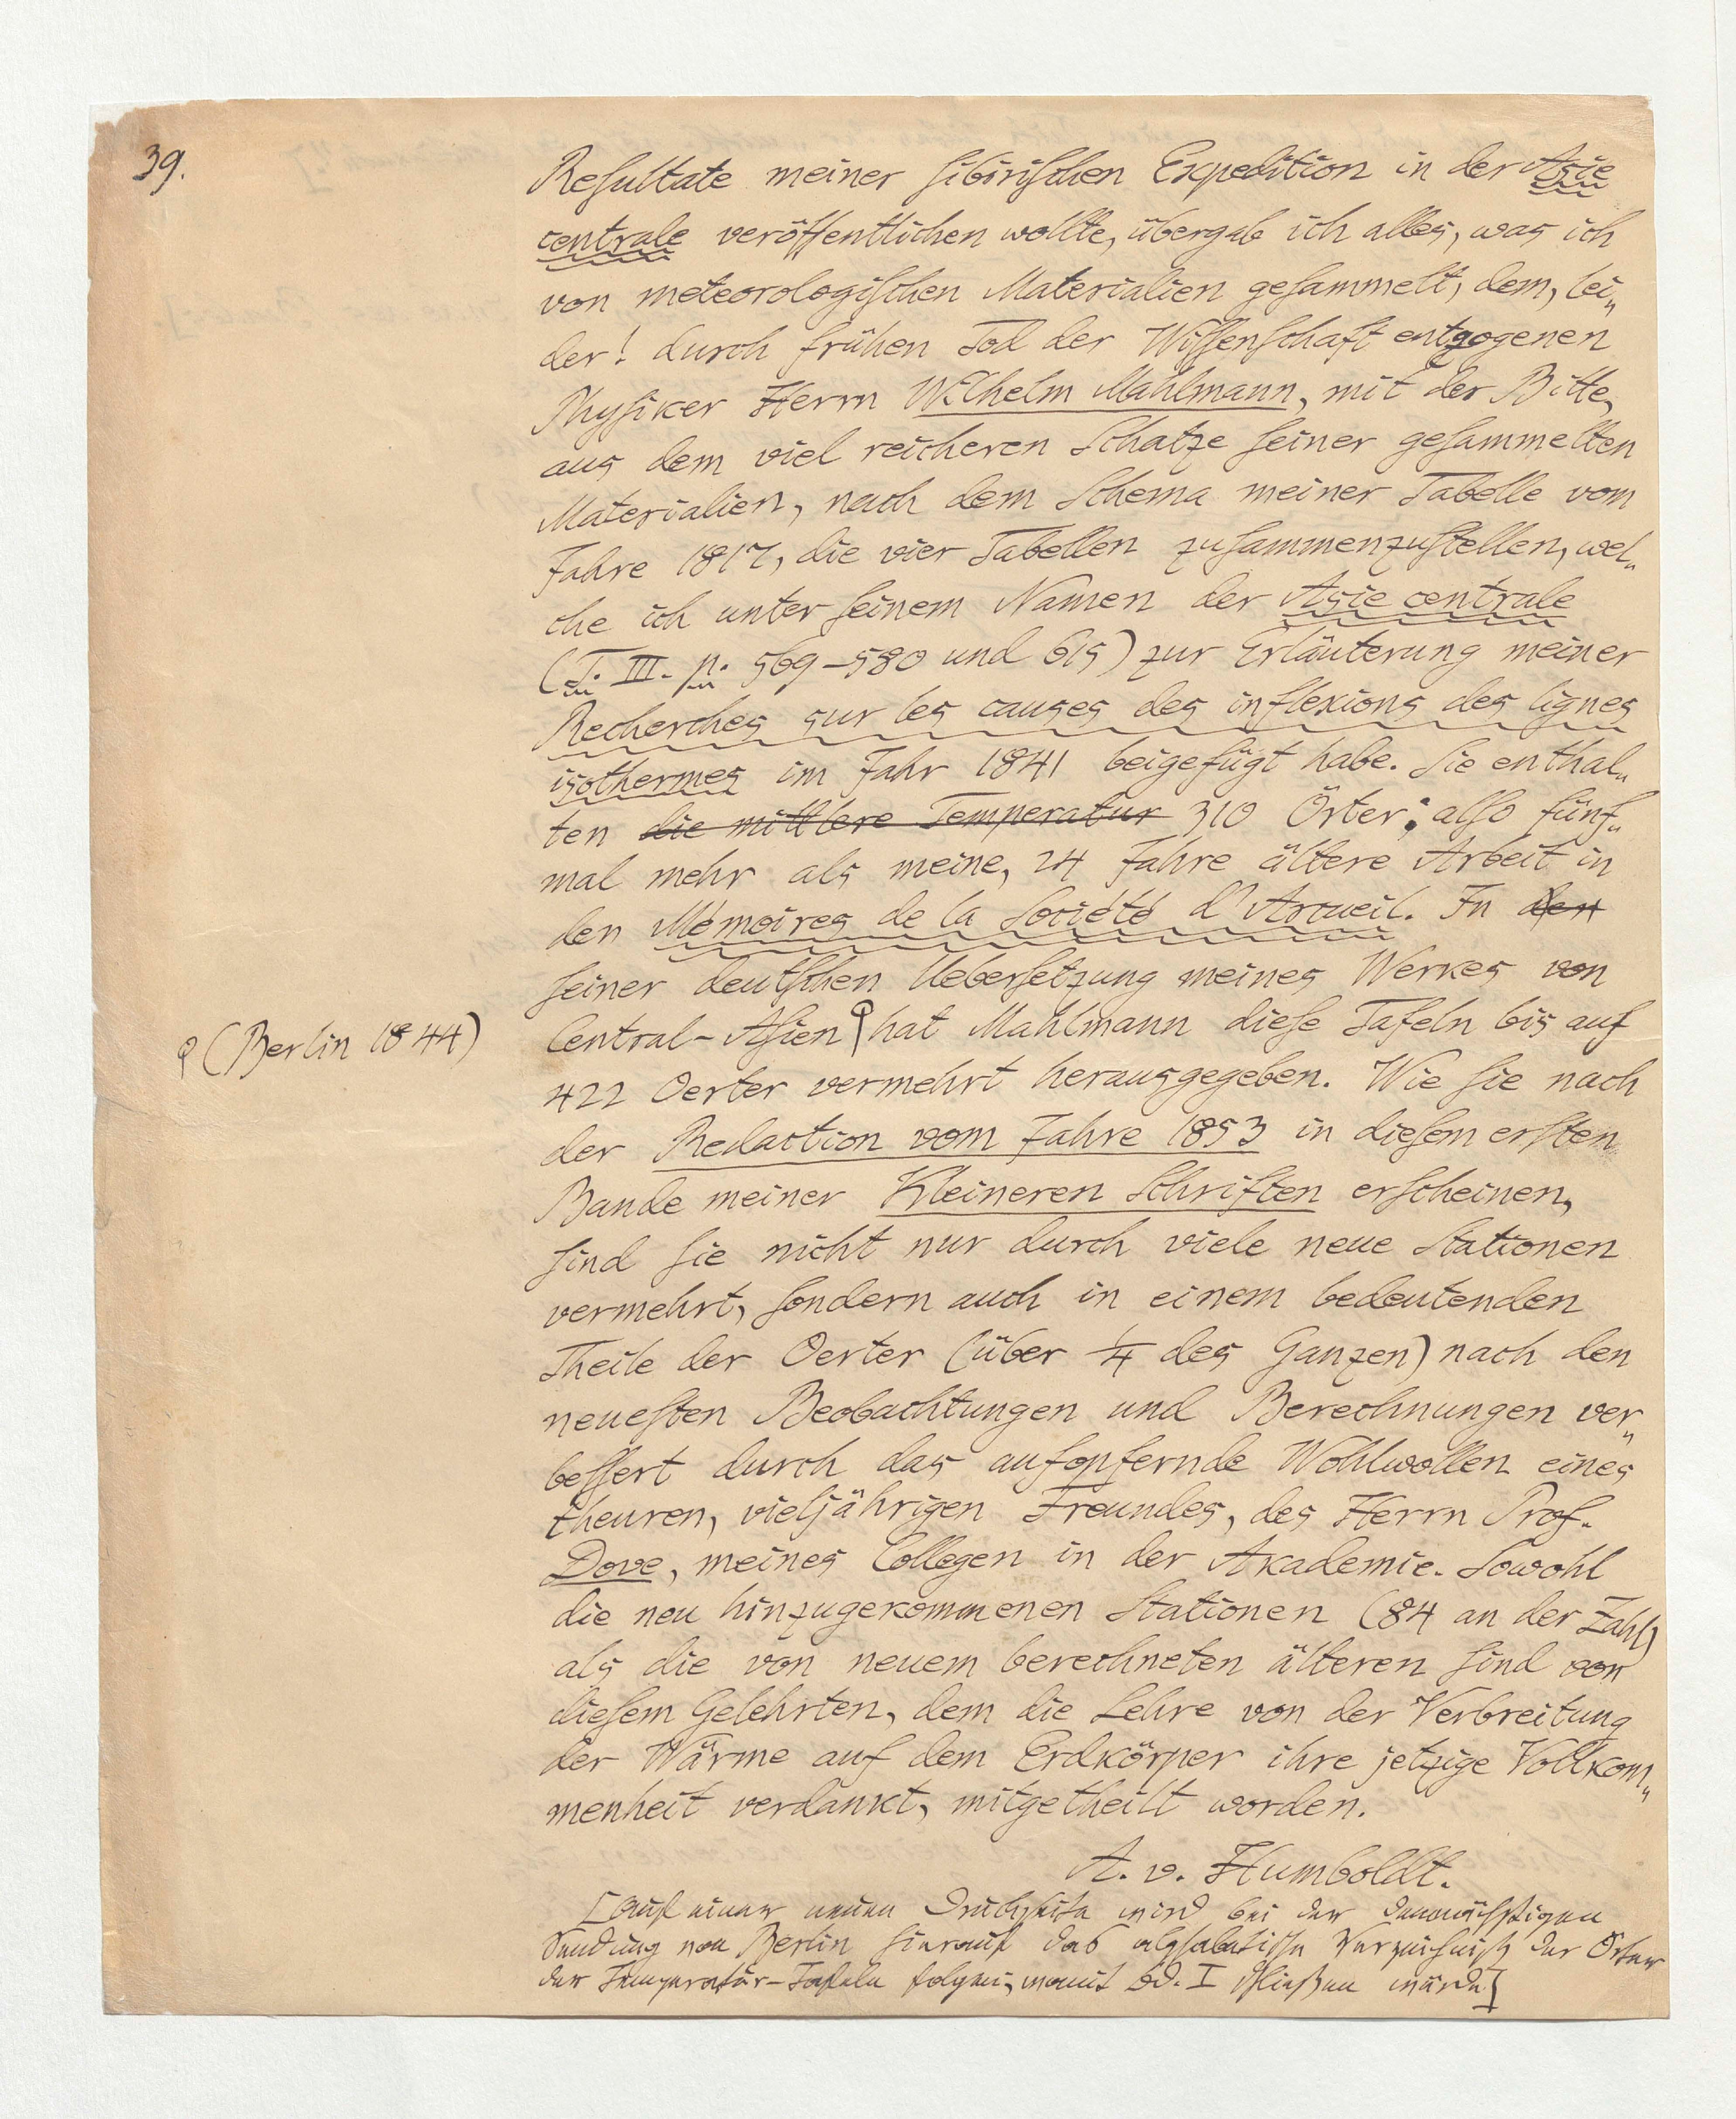 39.
Reſultate meiner ſibiriſchen Expedition in der Asie
centrale veröffentlichen wollte, übergab ich alles, was ich
von meteorologiſchen Materialien geſammelt, dem, lei„
der! durch frühen Tod der Wiſſenſchaft entzogenen
Phyſiker Herrn Wilhelm Mahlmann, mit der Bitte,
aus dem viel reicheren Schatze ſeiner geſammelten
Materialien, nach dem Schema meiner Tabelle vom
Jahre 1817, die vier Tabellen zuſammenzuſtellen, wel„
che ich unter ſeinem Namen der Asie centrale
(T. III. p. 569–580 und 615) zur Erläuterung meiner
Recherches sur les causes des inflexions des lignes
isothermes im Jahr 1841 beigefügt habe. Sie enthal„
ten die mittlere Temperatur 310 Örter; alſo fünf„
mal mehr als meine, 24 Jahre ältere Arbeit in
den Mémoires de la Société d'Arcueil. In den
ſeiner deutſchen Ueberſetzung meines Werkes von
Central-Aſien hat Mahlmann dieſe Tafeln bis auf
(Berlin 1844)
422 Oerter vermehrt herausgegeben. Wie ſie nach
der Redaction vom Jahre 1853 in dieſem erſten
Bande meiner Kleineren Schriften erſcheinen,
ſind ſie nicht nur durch viele neue Stationen
vermehrt, ſondern auch in einem bedeutenden
Theile der Oerter (über 1/4 des Ganzen) nach den
neueſten Beobachtungen und Berechnungen ver„
beſſert durch das aufopfernde Wohlwollen eines
theuren, vieljährigen Freundes, des Herrn Prof.
Dove, meines Collegen in der Akademie. Sowohl
die neu hinzugekommenen Stationen (84 an der Zahl)
als die von neuem berechneten älteren ſind von
dieſem Gelehrten, dem die Lehre von der Verbreitung
der Wärme auf dem Erdkörper ihre jetzige Vollkom„
menheit verdankt, mitgetheilt worden.
A. v. Humboldt.
[Auf einer neuen Druckſeite wird bei der demnächſtigen
Sendung von Berlin hierauf das alphabetiſche Verzeichniß der Örter
der Temperatur-Tafeln folgen, womit Bd. I ſchließen würde]